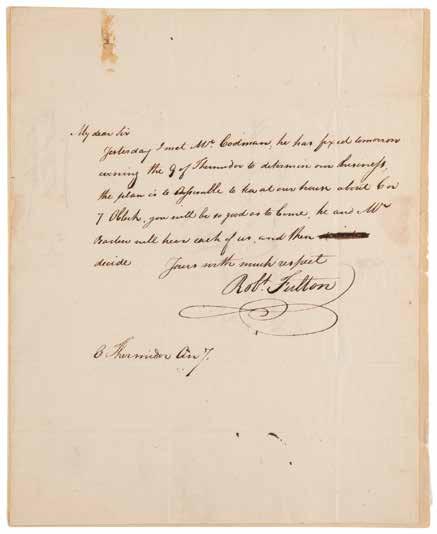 My dear Sir
Yesterday I met Mr. Codman, he has fixed tomorrow
evening the 9 of Thermidor to determin our business,
the plan is to Assemble to tea at our house about 6 or
7 OClock, you will be so good as to Come, he and Mr
Barlow will hear each of us, and then
decide Yours with much respect
Robt. Fulton
Thermidor An 7.